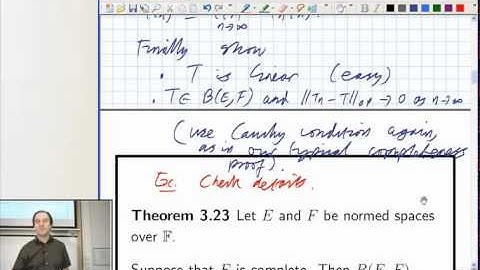 n→∞
Finally show
• T is linear (easy)
• T ∈ B(E,F) and ||Tn - T||op → 0 as n→∞
(use Cauchy condition again,
as in our typical completeness
proof).
Ex: Check details.
Theorem 3.23 Let E and F be normed spaces
over 𝔽.
Suppose that F is complete. Then B(E, F)